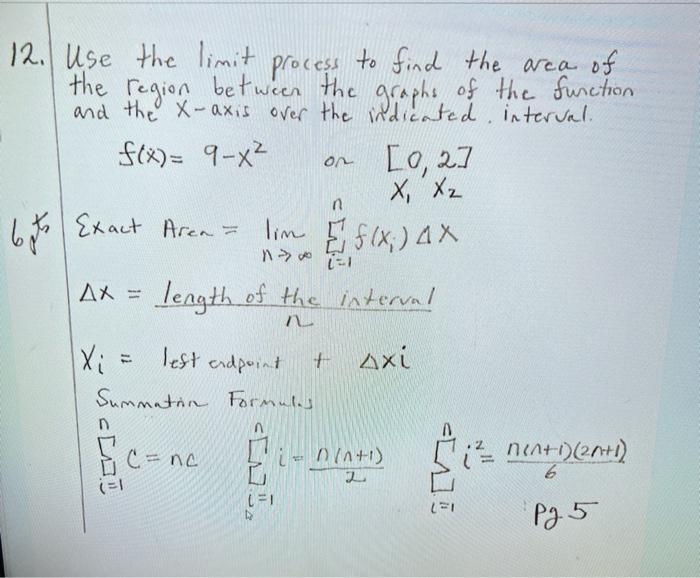 12. Use the limit process to find the area of
the region between the graphs of the function
and the x-axis over the indicated interval.
f(x) = 9-x² on [0,2]
X₁ X₂
6pts Exact Area = lim n→∞ n Σ i=1 f(xᵢ) Δx
Δx = length of the interval / n
Xᵢ = left endpoint + Δxi
Summation Formulas
n Σ i=1 C = nc n Σ i=1 i = n(n+1)/2 n Σ i=1 i² = n(n+1)(2n+1)/6
pg 5